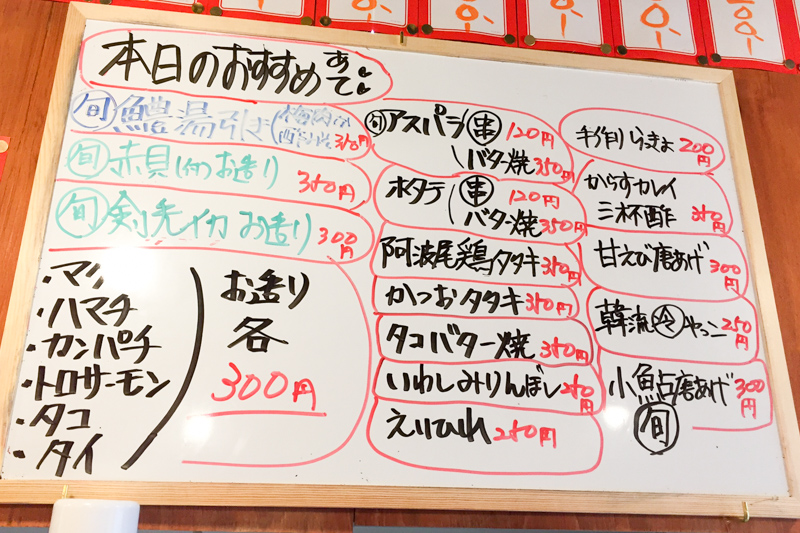 本日のおすすめ
あて
旬 鱧湯引き
梅肉
酢みそ
350円
旬 赤貝 お造り 350円
旬 剣先イカ お造り 300円
・マグロ
・ハマチ
・カンパチ
・トロサーモン
・タコ
・タイ
お造り
各
300円
旬 アスパラ 串 120円
バター焼 350円
ホタテ 串 120円
バター焼 350円
阿波尾鶏タタキ 350円
かつおタタキ 350円
タコバター焼 350円
いわしみりんぼし 250円
えいひれ 250円
手作りらっきょ 200円
からすカレイ
三杯酢 350円
甘えび唐あげ 300円
韓流冷やっこ 250円
小魚点唐あげ 300円
旬